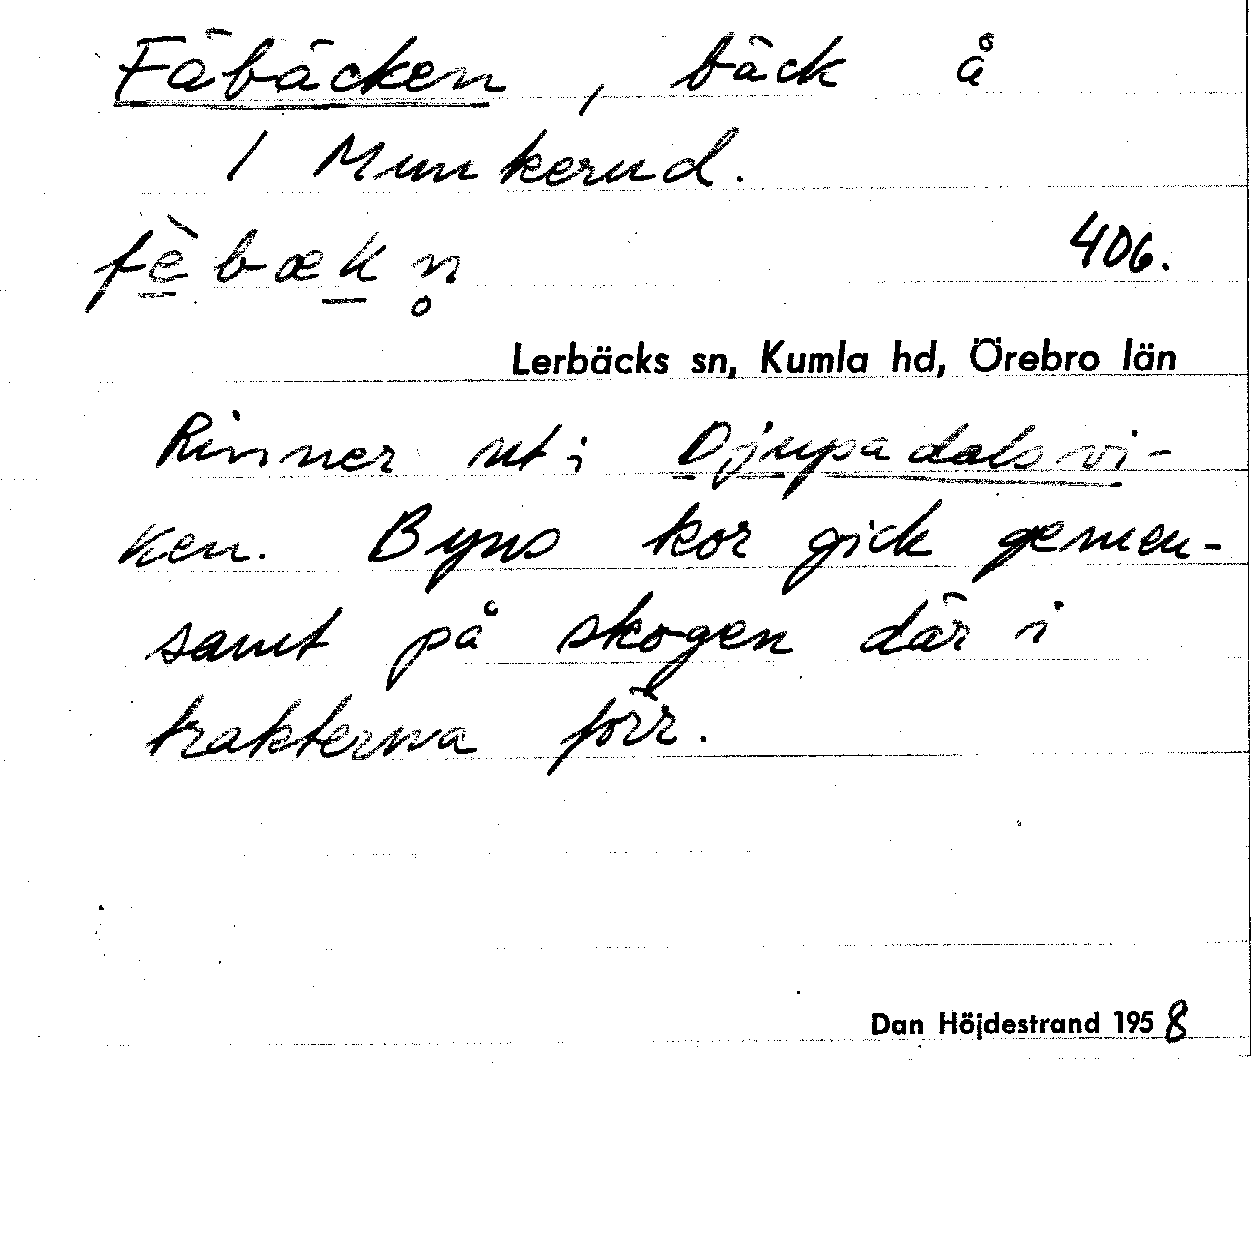 Fäbäcken, bäck å
1 Munkerud.
fèbækn̥
406.
Lerbäcks sn, Kumla hd, Örebro län
Rinner ut i Djupadalsvi-
ken. Byns kor gick gemen-
samt på skogen där i
trakterna förr.
Dan Höjdestrand 1958